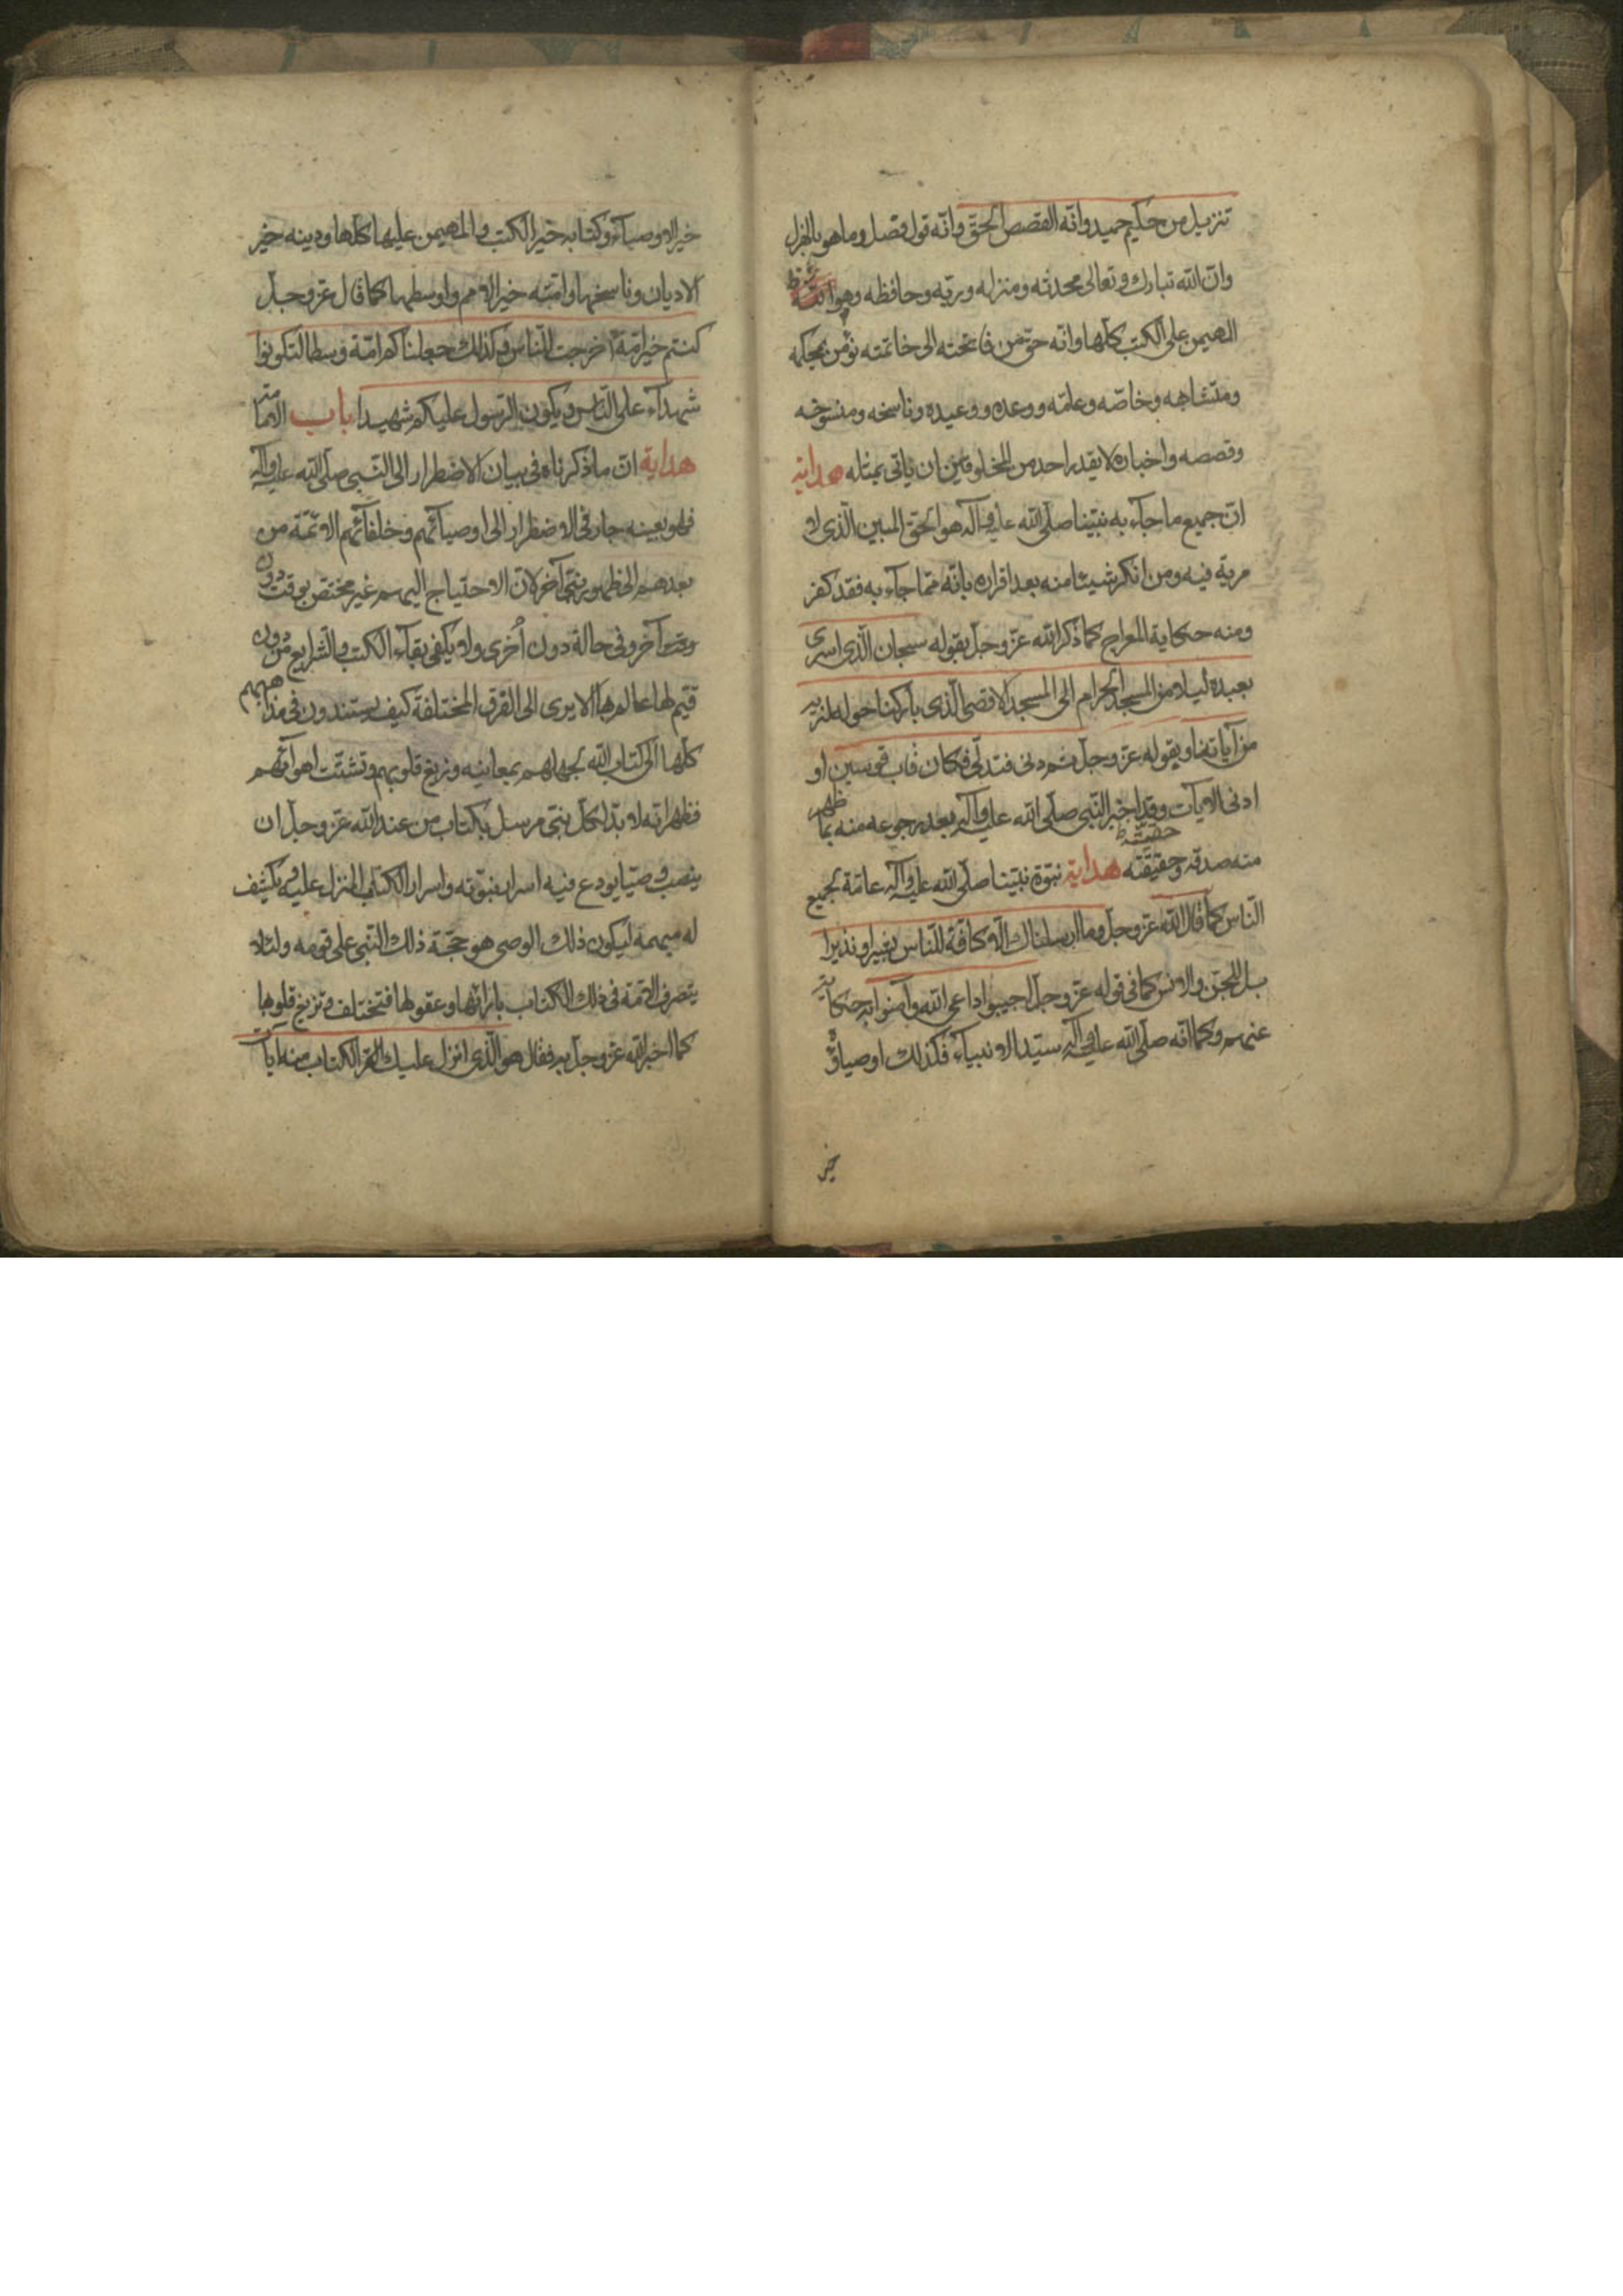 تنزيل من حكيم حميد وانّه القصص الحقّ وانّه قول فصل وما هو بالهزل
وانّ الله تبارك وتعالى محدثه ومنزله وربّه وحافظه وهو
المهيمن على الكتب كلّها وانّه حقّ من فاتحته الى خاتمته نؤمن بمحكمه
ومتشابهه وخاصّه وعامّه ووعده ووعيده وناسخه ومنسوخه
وقصصه واخباره لا يقدر احد من المخلوقين ان ياتى بمثله هداية
انّ جميع ما جآء به نبيّنا صلّى الله عليه وآله هو الحقّ المبين الّذى لا
مرية فيه ومن انكر شيئا منه بعد اقراره بانّه ممّا جآء به فقد كفر
ومنه حكاية المعراج كما ذكر الله عزّ وجلّ بقوله سبحان الّذى اسرى
بعبده ليلا من المسجد الحرام الى المسجد الاقصى الّذى باركنا حوله لنريه
من آياتنا وبقوله عزّ وجلّ ثم دنى فتدلّى فكان قاب قوسين او
ادنى الايات وقد اخبر النّبى صلّى الله عليه وآله بعد رجوعه منه بما ظهر
حقيّته ظ
منه صدقه وحقيقته هداية نبوّة نبيّنا صلّى الله عليه وآله عامّة لجميع
النّاس كما قال الله عزّ وجلّ وما ارسلناك الّا كافّة للنّاس بشيرا ونذيرا
بل للجنّ والانس كما فى قوله عزّ وجلّ اجيبوا داعى الله وآمنوا به حكاية
عنهم وكما انّه صلّى الله عليه وآله سيّد الانبيآء فكذلك اوصياؤه
خير
خير الاوصيآء وكتابه خير الكتب والمهيمن عليها كلّها ودينه خير
الاديان وناسخها وامّته خير الامم واوسطها كما قال عزّ وجلّ
كنتم خير امّة اخرجت للنّاس وكذلك جعلناكم امّة وسطا لتكونوا
شهدآء على النّاس ويكون الرّسول عليكم شهيدا باب الامامة
هداية انّ ما ذكرناه فى بيان الاضطرار الى النّبى صلّى الله عليه وآله
فهو بعينه جار فى الاضطرار الى اوصيآئهم وخلفآئهم الائمّة من
بعدهم الى ظهور نبىّ آخر لانّ الاحتياج اليهم غير مختصّ بوقت دون
وقت آخر وفى حالة دون اُخرى ولا يكفى بقآء الكتب والشّرايع من دون
قيّم لها عالم بها الا يرى الى الفرق المختلفة كيف يستندون فى مذاهبهم
كلّها الى كتاب الله لجهلهم بمعانيه وزيغ قلوبهم وتشتّت اهوآئهم
فظهر انّه لا بدّ لكلّ نبىّ مرسل بكتاب من عند الله عزّ وجلّ ان
ينصب وصيّا يودع فيه اسرار نبوّته واسرار الكتاب المنزل عليه ويكشف
له مبهمه ليكون ذلك الوصى هو حجّة ذلك النّبى على قومه ولئلّا
يتصرف الامّة فى ذلك الكتاب بارآئها وعقولها فتختلف وتزيغ قلوبها
كما اخبر الله عزّ وجلّ به فقال هو الّذى انزل عليك الكتاب منه آيات